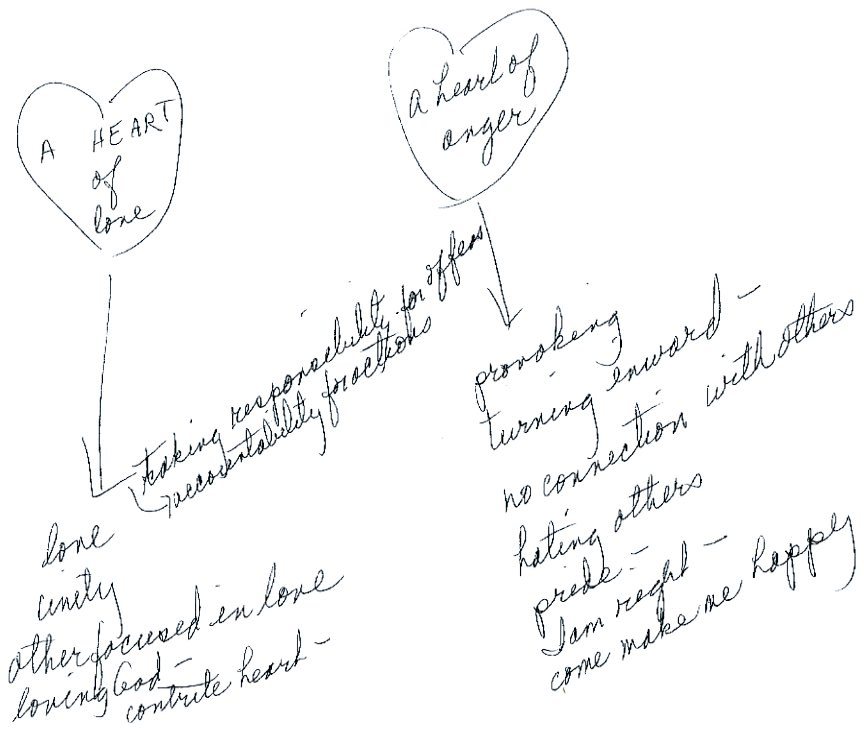 A HEART
of
love
a heart of
anger
taking responsibility for offens
accountability for actions
love
unity
other focused in love
loving God -
contrite heart -
provoking
turning inward -
no connection with others
hating others
pride -
I am right -
come make me happy